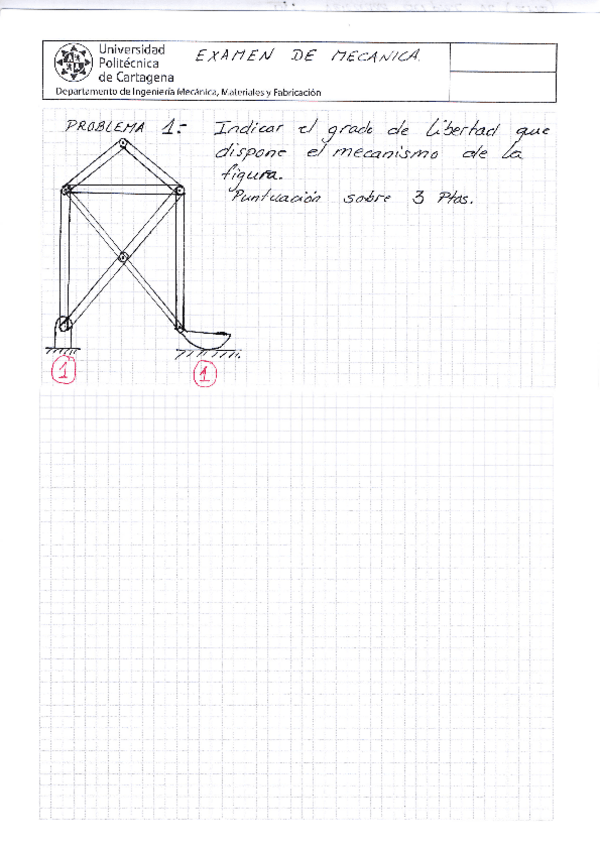 Universidad
Politécnica
de Cartagena
EXAMEN DE MECANICA.
Departamento de Ingeniería Mecánica, Materiales y Fabricación
PROBLEMA 1.- Indicar el grado de libertad que
dispone el mecanismo de la
figura.
Puntuación sobre 3 Ptos.
1
1